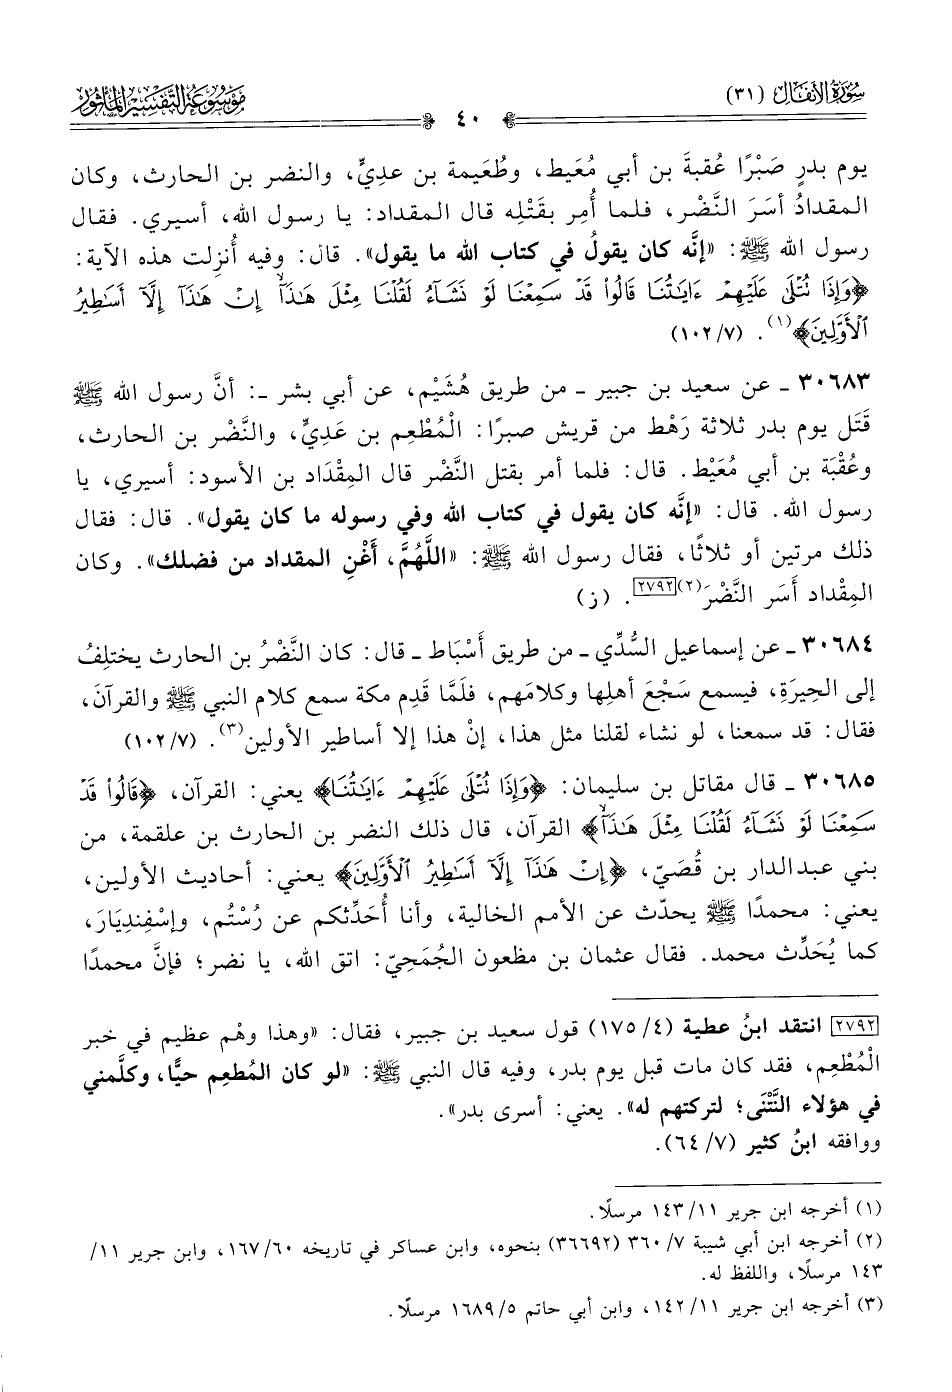 سُورَةُ الأَنفَال (٣١)
٤٠
مَوْسُوعَةُ التَّفْسِيرِ المَأْثُور
يوم بدرٍ صَبْرًا عُقبةَ بن أبي مُعَيط، وطُعَيمة بن عديٍّ، والنضر بن الحارث، وكان
المقدادُ أسَرَ النَّضْر، فلما أُمِر بقَتْلِه قال المقداد: يا رسول الله، أسيري. فقال
رسول الله ﷺ: «إنَّه كان يقولُ في كتاب الله ما يقول». قال: وفيه أُنزِلت هذه الآية:
﴿وَإِذَا تُتْلَىٰ عَلَيْهِمْ ءَايَٰتُنَا قَالُوا۟ قَدْ سَمِعْنَا لَوْ نَشَآءُ لَقُلْنَا مِثْلَ هَٰذَآ ۙ إِنْ هَٰذَآ إِلَّآ أَسَٰطِيرُ
ٱلْأَوَّلِينَ﴾(١). (٧/ ١٠٢)
٣٠٦٨٣ ـ عن سعيد بن جبير ـ من طريق هُشَيْم، عن أبي بشر ـ: أنَّ رسول الله ﷺ
قَتَل يوم بدر ثلاثة رَهْط من قريش صبرًا: الْمُطْعِم بن عَدِيٍّ، والنَّضْر بن الحارث،
وعُقْبَة بن أبي مُعَيْط. قال: فلما أمر بقتل النَّضْر قال المِقْدَاد بن الأسود: أسيري، يا
رسول الله. قال: «إنَّه كان يقول في كتاب الله وفي رسوله ما كان يقول». قال: فقال
ذلك مرتين أو ثلاثًا، فقال رسول الله ﷺ: «اللَّهُمَّ، أَغْنِ المقداد من فضلك». وكان
المِقْداد أَسَر النَّضْرَ(٢)[٢٧٩٢]. (ز)
٣٠٦٨٤ ـ عن إسماعيل السُّدِّي ـ من طريق أَسْبَاط ـ قال: كان النَّضْرُ بن الحارث يختلِفُ
إلى الحِيرَةِ، فيسمع سَجْعَ أهلِها وكلامَهم، فلَمَّا قَدِم مكة سمع كلام النبي ﷺ والقرآنَ،
فقال: قد سمعنا، لو نشاء لقلنا مثل هذا، إنْ هذا إلا أساطير الأولين(٣). (٧/ ١٠٢)
٣٠٦٨٥ ـ قال مقاتل بن سليمان: ﴿وَإِذَا تُتْلَىٰ عَلَيْهِمْ ءَايَٰتُنَا﴾ يعني: القرآن، ﴿قَالُوا۟ قَدْ
سَمِعْنَا لَوْ نَشَآءُ لَقُلْنَا مِثْلَ هَٰذَآ ۙ﴾ القرآن، قال ذلك النضر بن الحارث بن علقمة، من
بني عبدالدار بن قُصَيّ، ﴿إِنْ هَٰذَآ إِلَّآ أَسَٰطِيرُ ٱلْأَوَّلِينَ﴾ يعني: أحاديث الأولين،
يعني: محمدًا ﷺ يحدّث عن الأمم الخالية، وأنا أُحَدِّثكم عن رُسْتُم، وإسْفِندِيَار،
كما يُحَدِّث محمد. فقال عثمان بن مظعون الجُمَحِيّ: اتق الله، يا نضر؛ فإنَّ محمدًا
[٢٧٩٢] انتقد ابنُ عطية (٤/ ١٧٥) قول سعيد بن جبير، فقال: «وهذا وهْم عظيم في خبر
الْمُطْعِم، فقد كان مات قبل يوم بدر، وفيه قال النبي ﷺ: «لو كان المُطعِم حيًّا، وكلَّمني
في هؤلاء النَّتْنَى؛ لتركتهم له». يعني: أسرى بدر».
ووافقه ابنُ كثير (٧/ ٦٤).
(١) أخرجه ابن جرير ١١/ ١٤٣ مرسلًا.
(٢) أخرجه ابن أبي شيبة ٧/ ٣٦٠ (٣٦٦٩٢) بنحوه، وابن عساكر في تاريخه ٦٠/ ١٦٧، وابن جرير ١١/
١٤٣ مرسلًا، واللفظ له.
(٣) أخرجه ابن جرير ١١/ ١٤٢، وابن أبي حاتم ٥/ ١٦٨٩ مرسلًا.